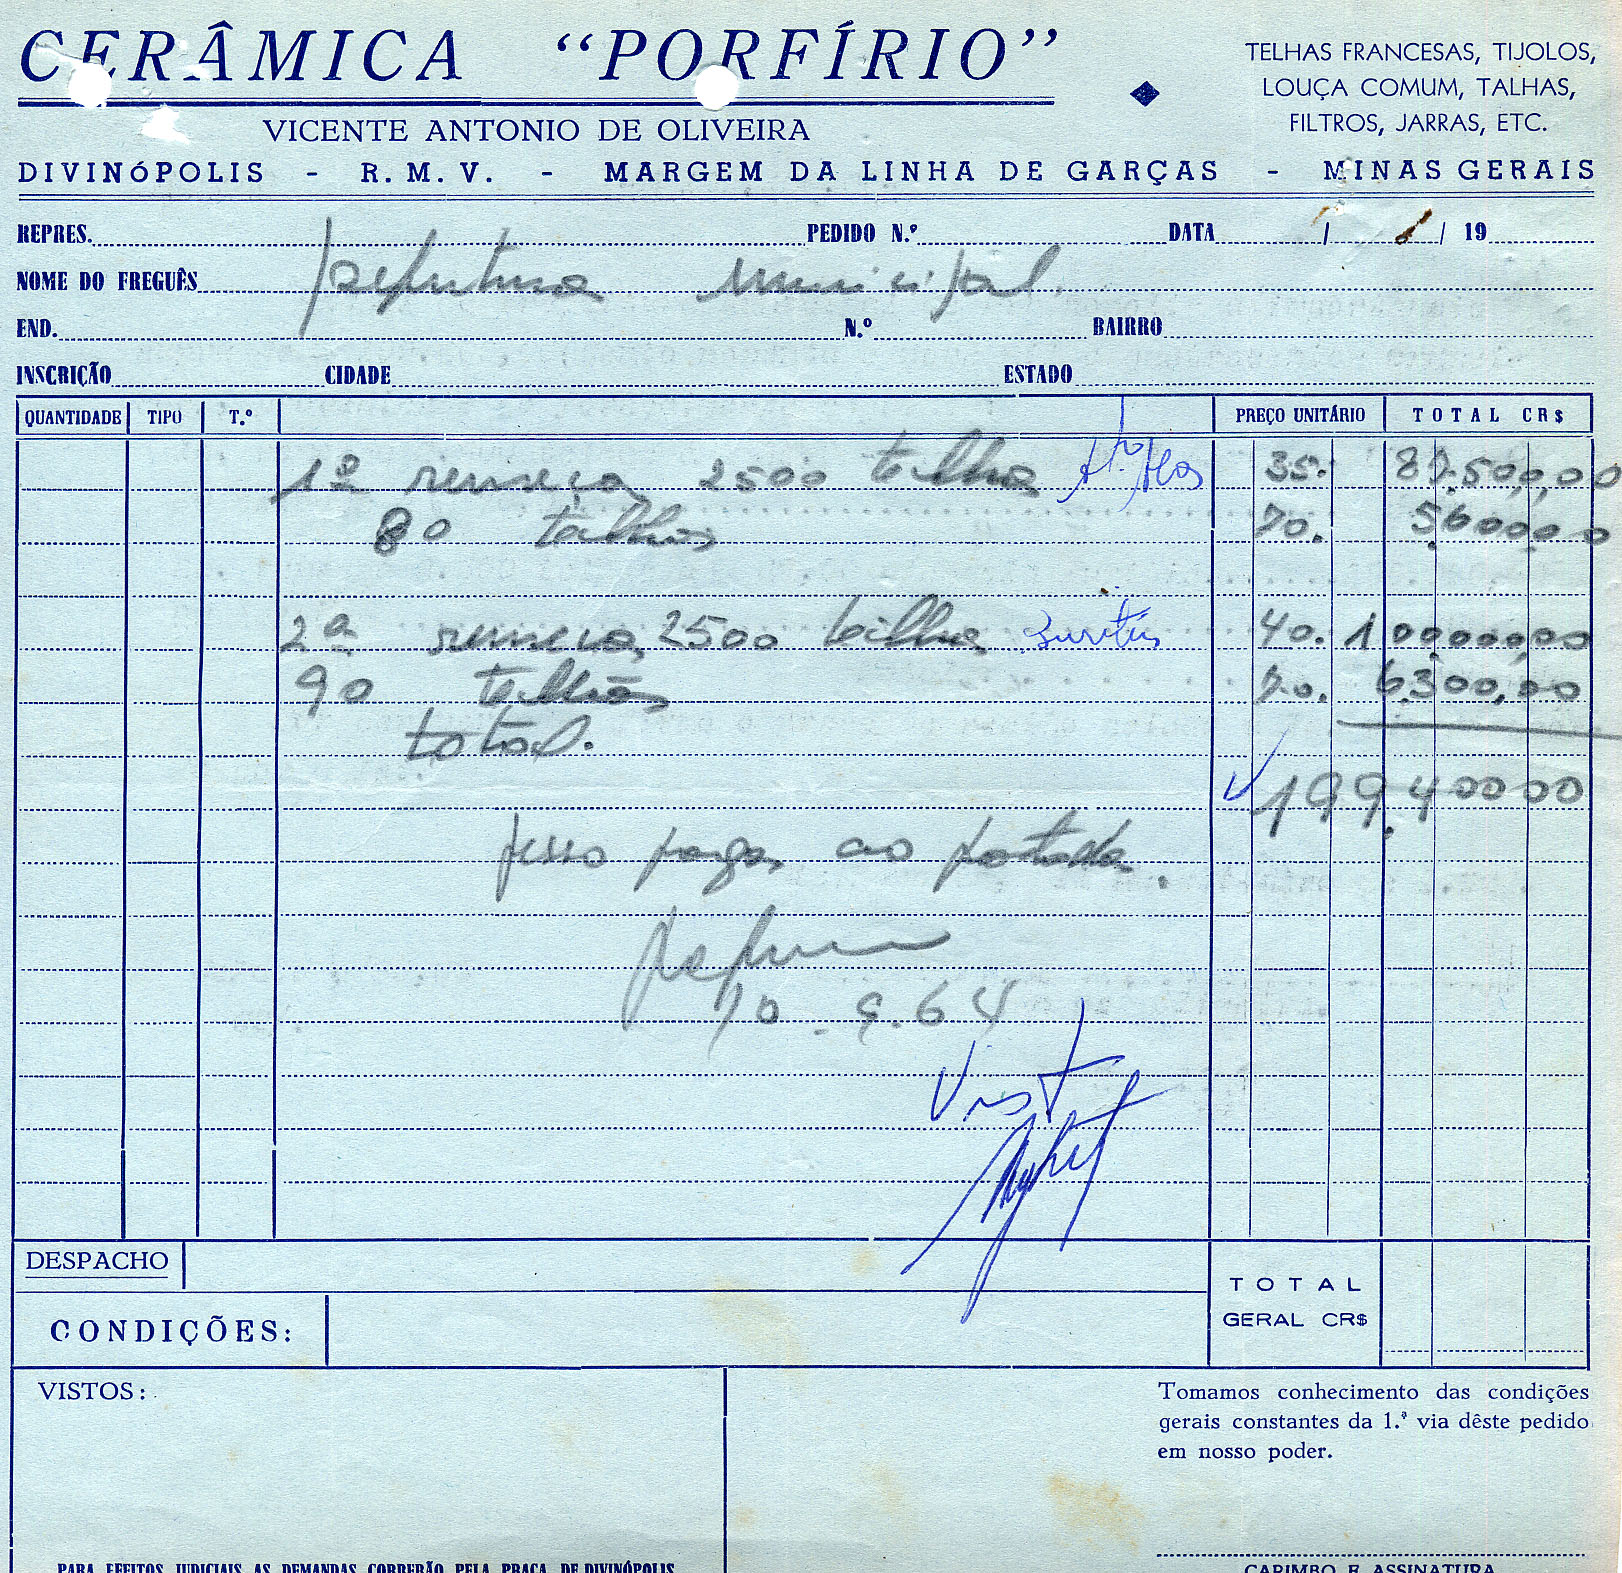 CERÂMICA "PORFÍRIO"
TELHAS FRANCESAS, TIJOLOS,
LOUÇA COMUM, TALHAS,
FILTROS, JARRAS, ETC.
VICENTE ANTONIO DE OLIVEIRA
DIVINÓPOLIS - R. M. V. - MARGEM DA LINHA DE GARÇAS - MINAS GERAIS
REPRES. PEDIDO N.º DATA / / 19
NOME DO FREGUÊS municipal.
END. N.º BAIRRO
INSCRIÇÃO CIDADE ESTADO
QUANTIDADE TIPO T.º PREÇO UNITÁRIO TOTAL CR$
1ª remeça 2500 telha 35. 87.500,00
80 talhões 70. 5.600,00
2ª remeça 2500 telha 40. 100000,00
90 telhões 70. 6300,00
total.
199.40000
pesso pagar ao portador.
10.9.64
Visto
DESPACHO
CONDIÇÕES:
TOTAL
GERAL CR$
VISTOS:
Tomamos conhecimento das condições
gerais constantes da 1.ª via dêste pedido
em nosso poder.
PARA EFEITOS JUDICIAIS AS DEMANDAS CORRERÃO PELA PRAÇA DE DIVINÓPOLIS
CARIMBO E ASSINATURA